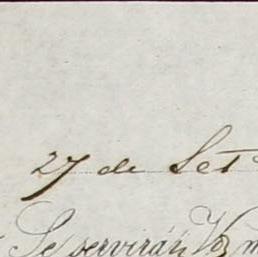 27 de Set
Se servirán Vm